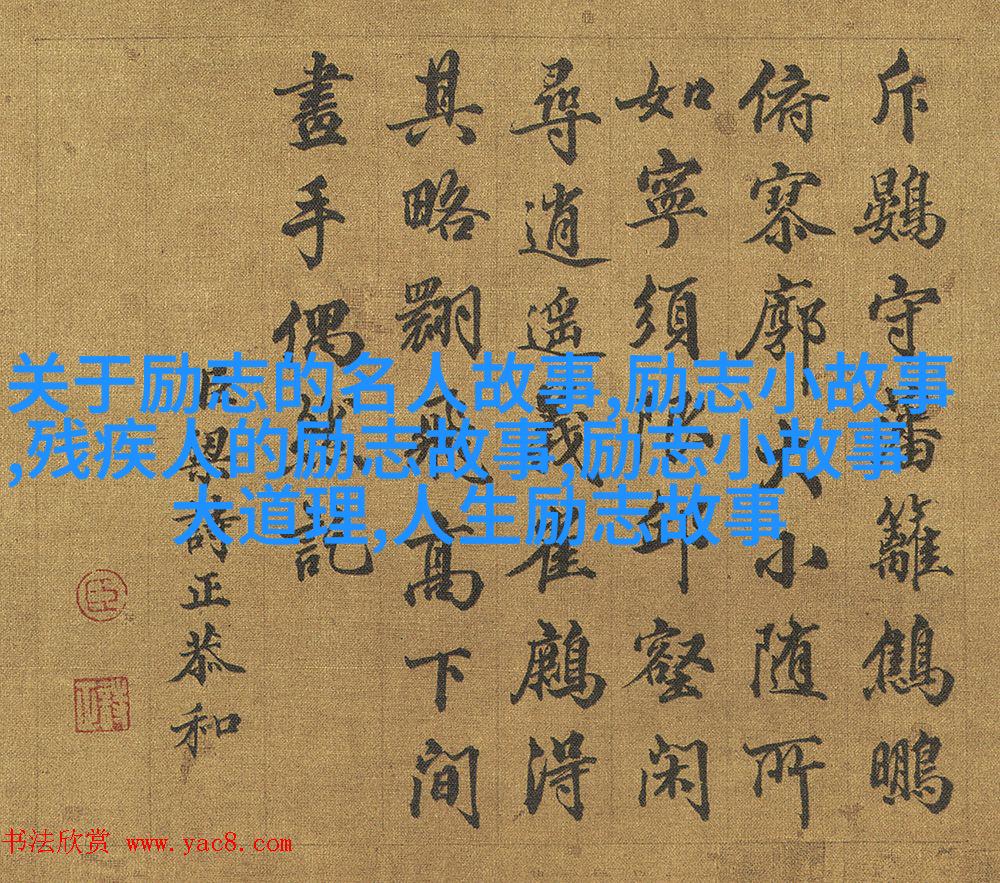 斥鷃守蕃籬鷦鵬
俯寥廓大小随所
如寧須邱壑閑
尋逍遥義崔得
其略翾飛高下間
畫手偶記
臣梁詩正恭和
关于励志的名人故事,励志小故事
,残疾人的励志故事,励志小故事
大道理,人生励志故事
书法欣赏 www.yac8.com